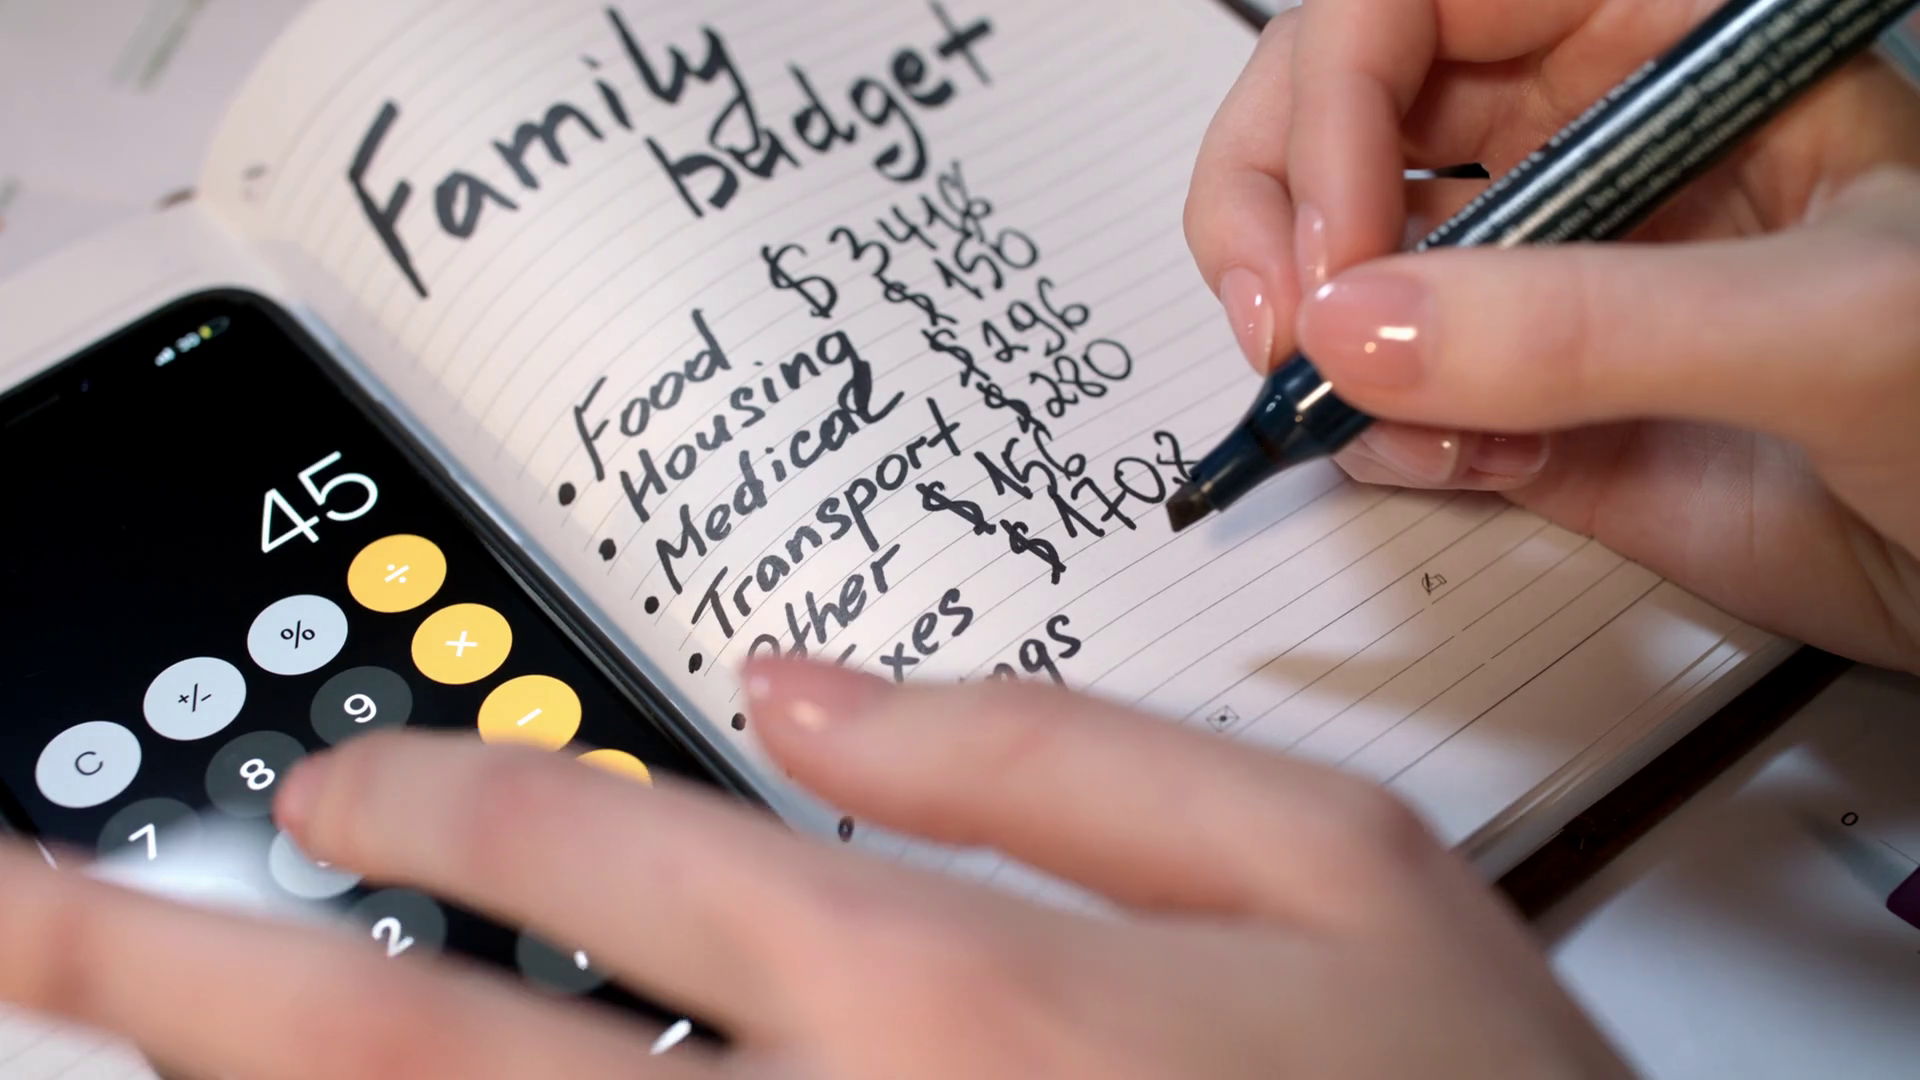 Family
budget
• Food $ 3418
• Housing $ 150
• Medical $ 296
• Transport $ 280
• Other $ 156
xes $ 1708
ngs
45
C +/- % ÷
7 8 9 ×
−
2